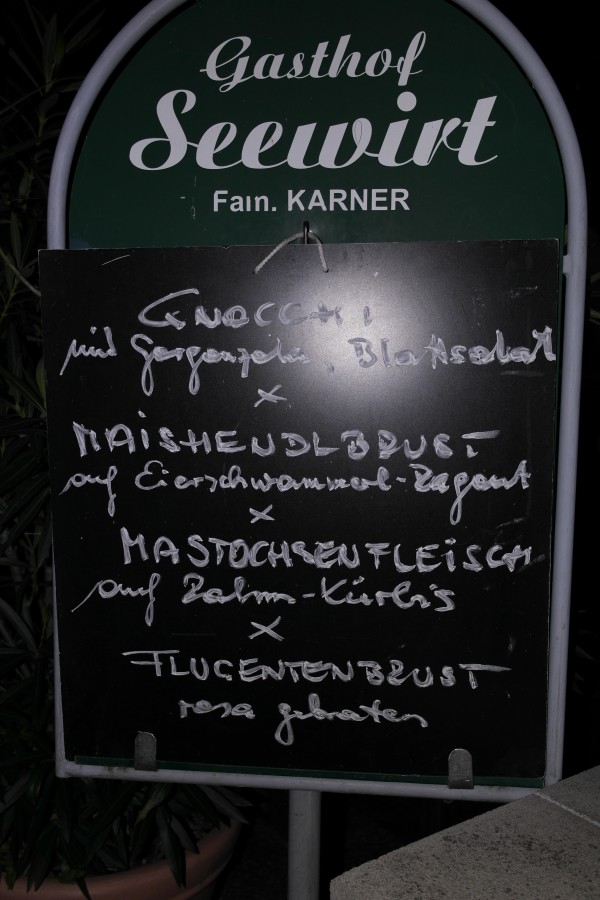 Gasthof
Seewirt
Fam. KARNER
GNOCCHI
mit Gorgonzola, Blattsalat
x
MAISHENDLBRUST
auf Eierschwammerl-Ragout
x
MASTOCHSENFLEISCH
auf Rahm-Kürbis
x
FLUGENTENBRUST
rosa gebraten